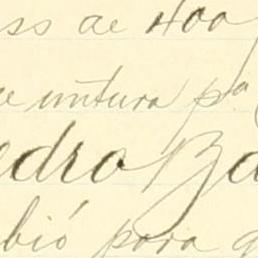 ss de 400
e untura pª
edro Ba
bió para g